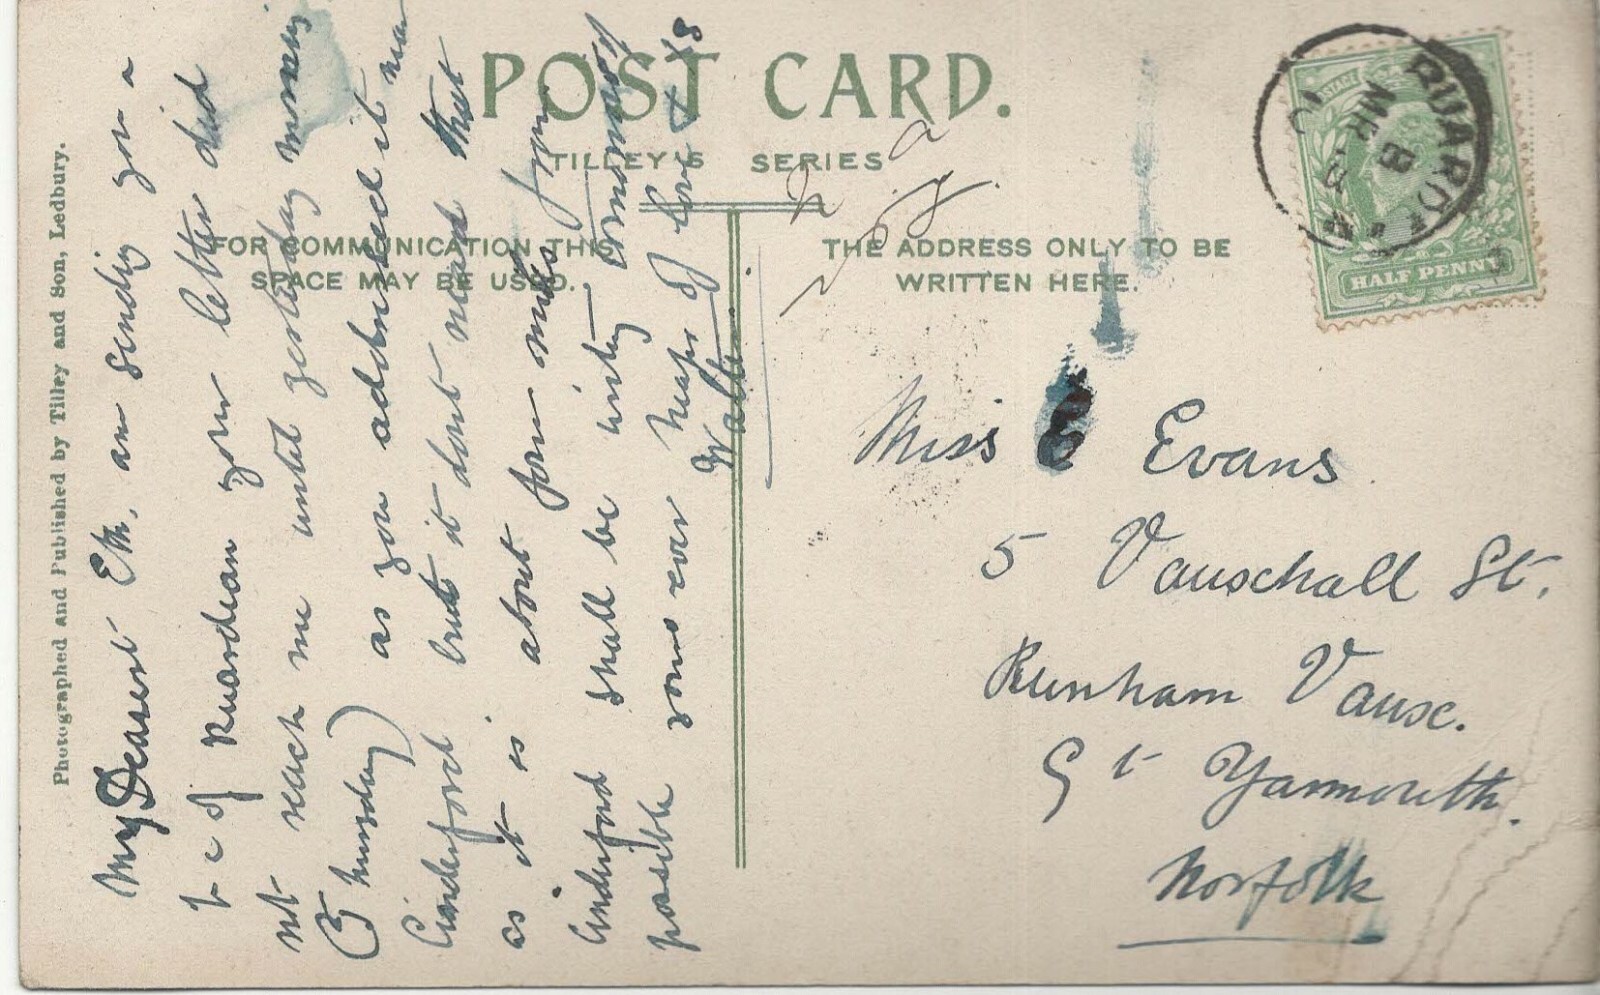 POST CARD.
TILLEY'S SERIES
FOR COMMUNICATION THIS
SPACE MAY BE USED.
THE ADDRESS ONLY TO BE
WRITTEN HERE.
Photographed and Published by Tilley and Son, Ledbury.
My Dearest Eth, am sending you a
p c of Ruardean your letter did
nt reach me until yesterday morning
(Thursday) as you addressed it near
Cinderford but it dont need that
as it is about four miles from
Cinderford shall be writing tomorrow if
possible yours ever heaps of love & x's
Walter
Miss E Evans
5 Vauxchall St.
Runham Vauxc.
Gt Yarmouth.
Norfolk
RUARDEAN
MR 8
10
POSTAGE
HALF PENNY